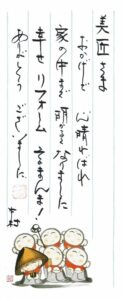 美匠さま
おかげで 心晴ればれ
家の中まで 明かるくなりました
幸せリフォーム さまさま!
ありがとう ございました
中村